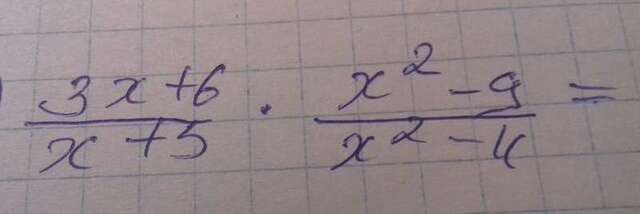 3x+6 / x+5 · x²-9 / x²-4 =